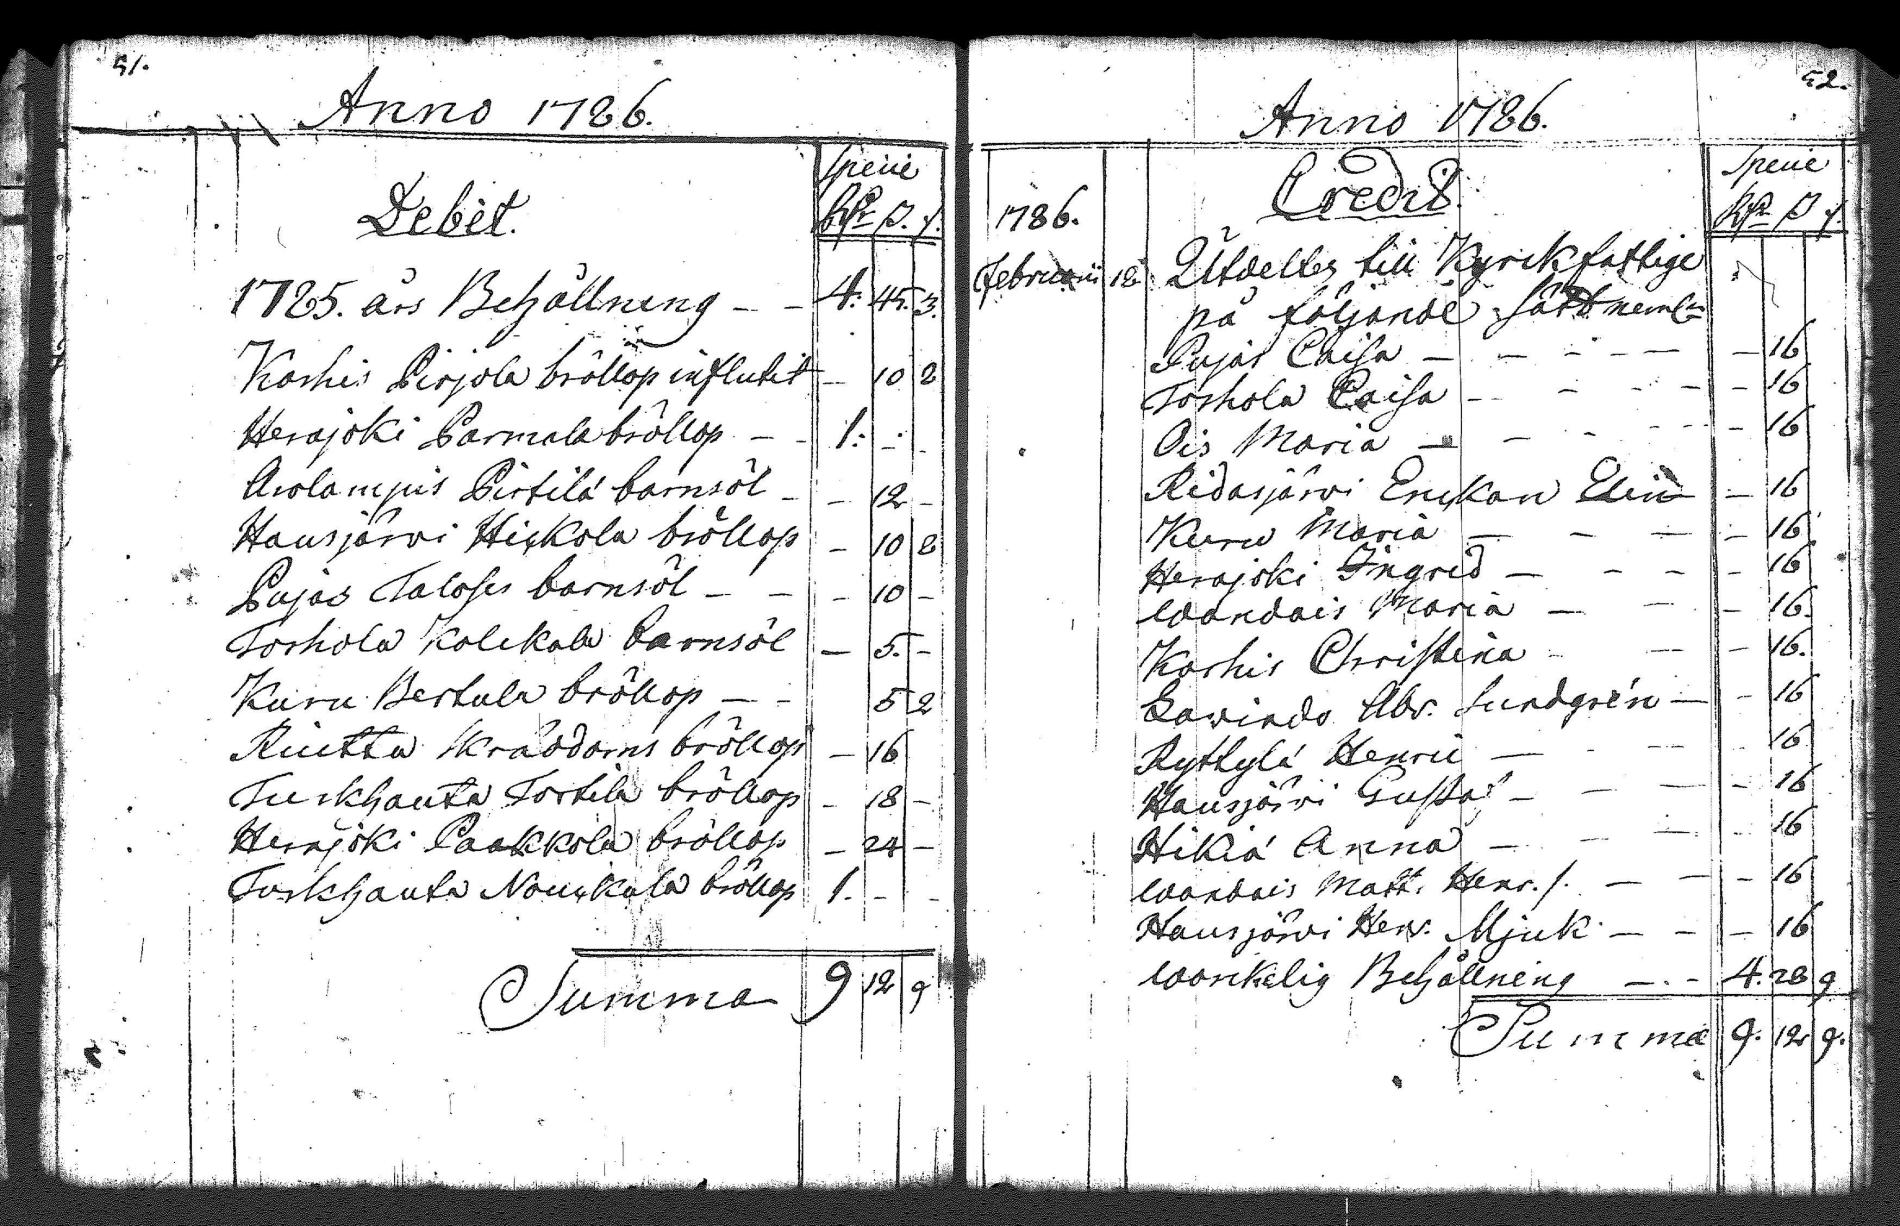 51.
Anno 1786.
Debet.
Specie
Rdr ß. r.
1785. års Behållning - - 4: 45. 3.
Karhis Pirjola bröllop influtit - 10 2
Herajoki Parmala bröllop - - 1: - -
Arolampis Pirtilä barnsöl - - 12 -
Hausjärvi Hickola bröllop - 10 2
Pujas Talofes barnsöl - - - 10 -
Torhola Kolckala barnsöl - 5. -
Kuru Bertula bröllop - - 5 2
Riutta Skräddarns bröllop - 16
Turkhauta Tortila bröllop - 18 -
Herajoki Paakkola bröllop - 24 -
Turkhauta Nouckala bröllop 1. - -
Summa 9 12 9
52.
Anno 1786.
Credit.
Specie
Rdr ß r.
1786.
Februarii 12 Utdeltes till Kyrckfattige
på följande sätt neml:n
Pujas Caisa - - - - - - 16
Torhola Caisa - - - - - 16
Ois Maria - - - - - - 16
Ridasjärvi Erickan Elin - 16
Kuru Maria - - - - 16
Herajoki Ingrid - - - - 16
Wandais Maria - - - - 16.
Karhis Christina - - - 16.
Lavinds Abr. Sundgrén - - 16
Ryttylä Henric - - - - 16
Hausjärvi Gustaf - - - - 16
Hikiä Anna - - - - 16
Wandais Matt. Henr. s. - - - 16
Hausjärvi Henr. Mjuk - - - 16
Worckelig Behållning - - - 4. 28 9
Summa 9. 12 9.